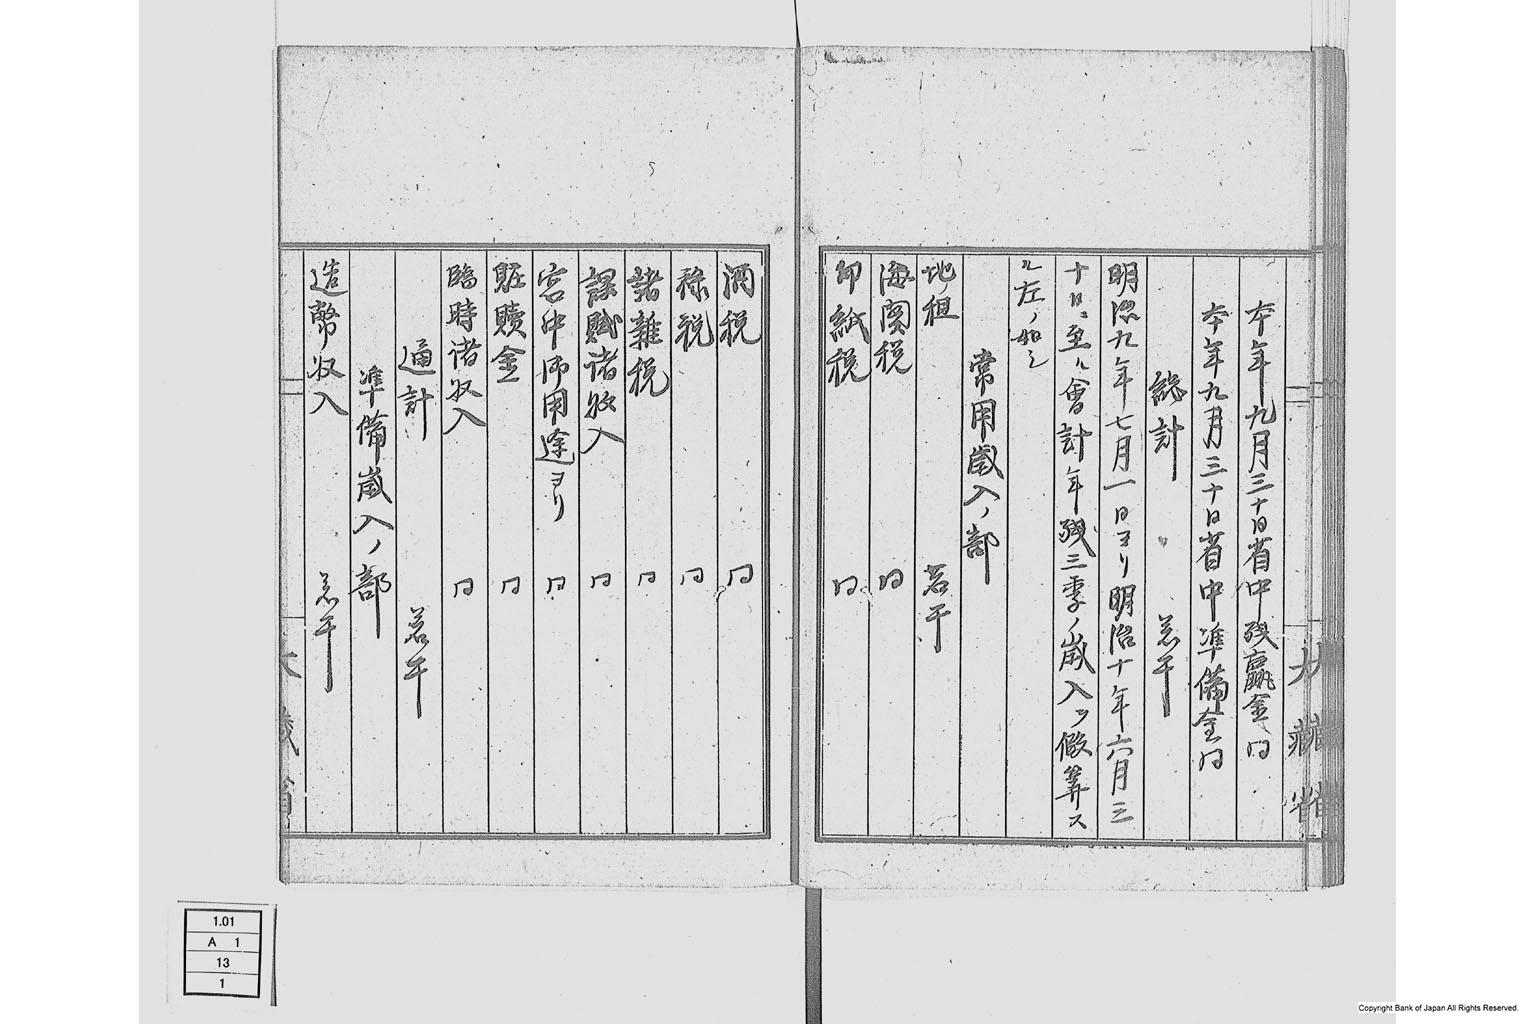 本年九月三十日省中残贏金 同
本年九月三十日省中準備金 同
総計 若干
明治九年七月一日ヨリ明治十年六月三
十日ニ至ル會計年残三季ノ歳入ヲ假算ス
ル左ノ如シ
常用歳入ノ部
地租 若干
海関税 同
印紙税 同
大藏省
酒税 同
禄税 同
諸雑税 同
課賦諸収入 同
宮中御用途ヨリ 同
賍贖金 同
臨時諸収入 同
通計 若干
準備歳入ノ部
造幣収入 若干
大藏省
1.01
A 1
13
1
Copyright Bank of Japan All Rights Reserved.